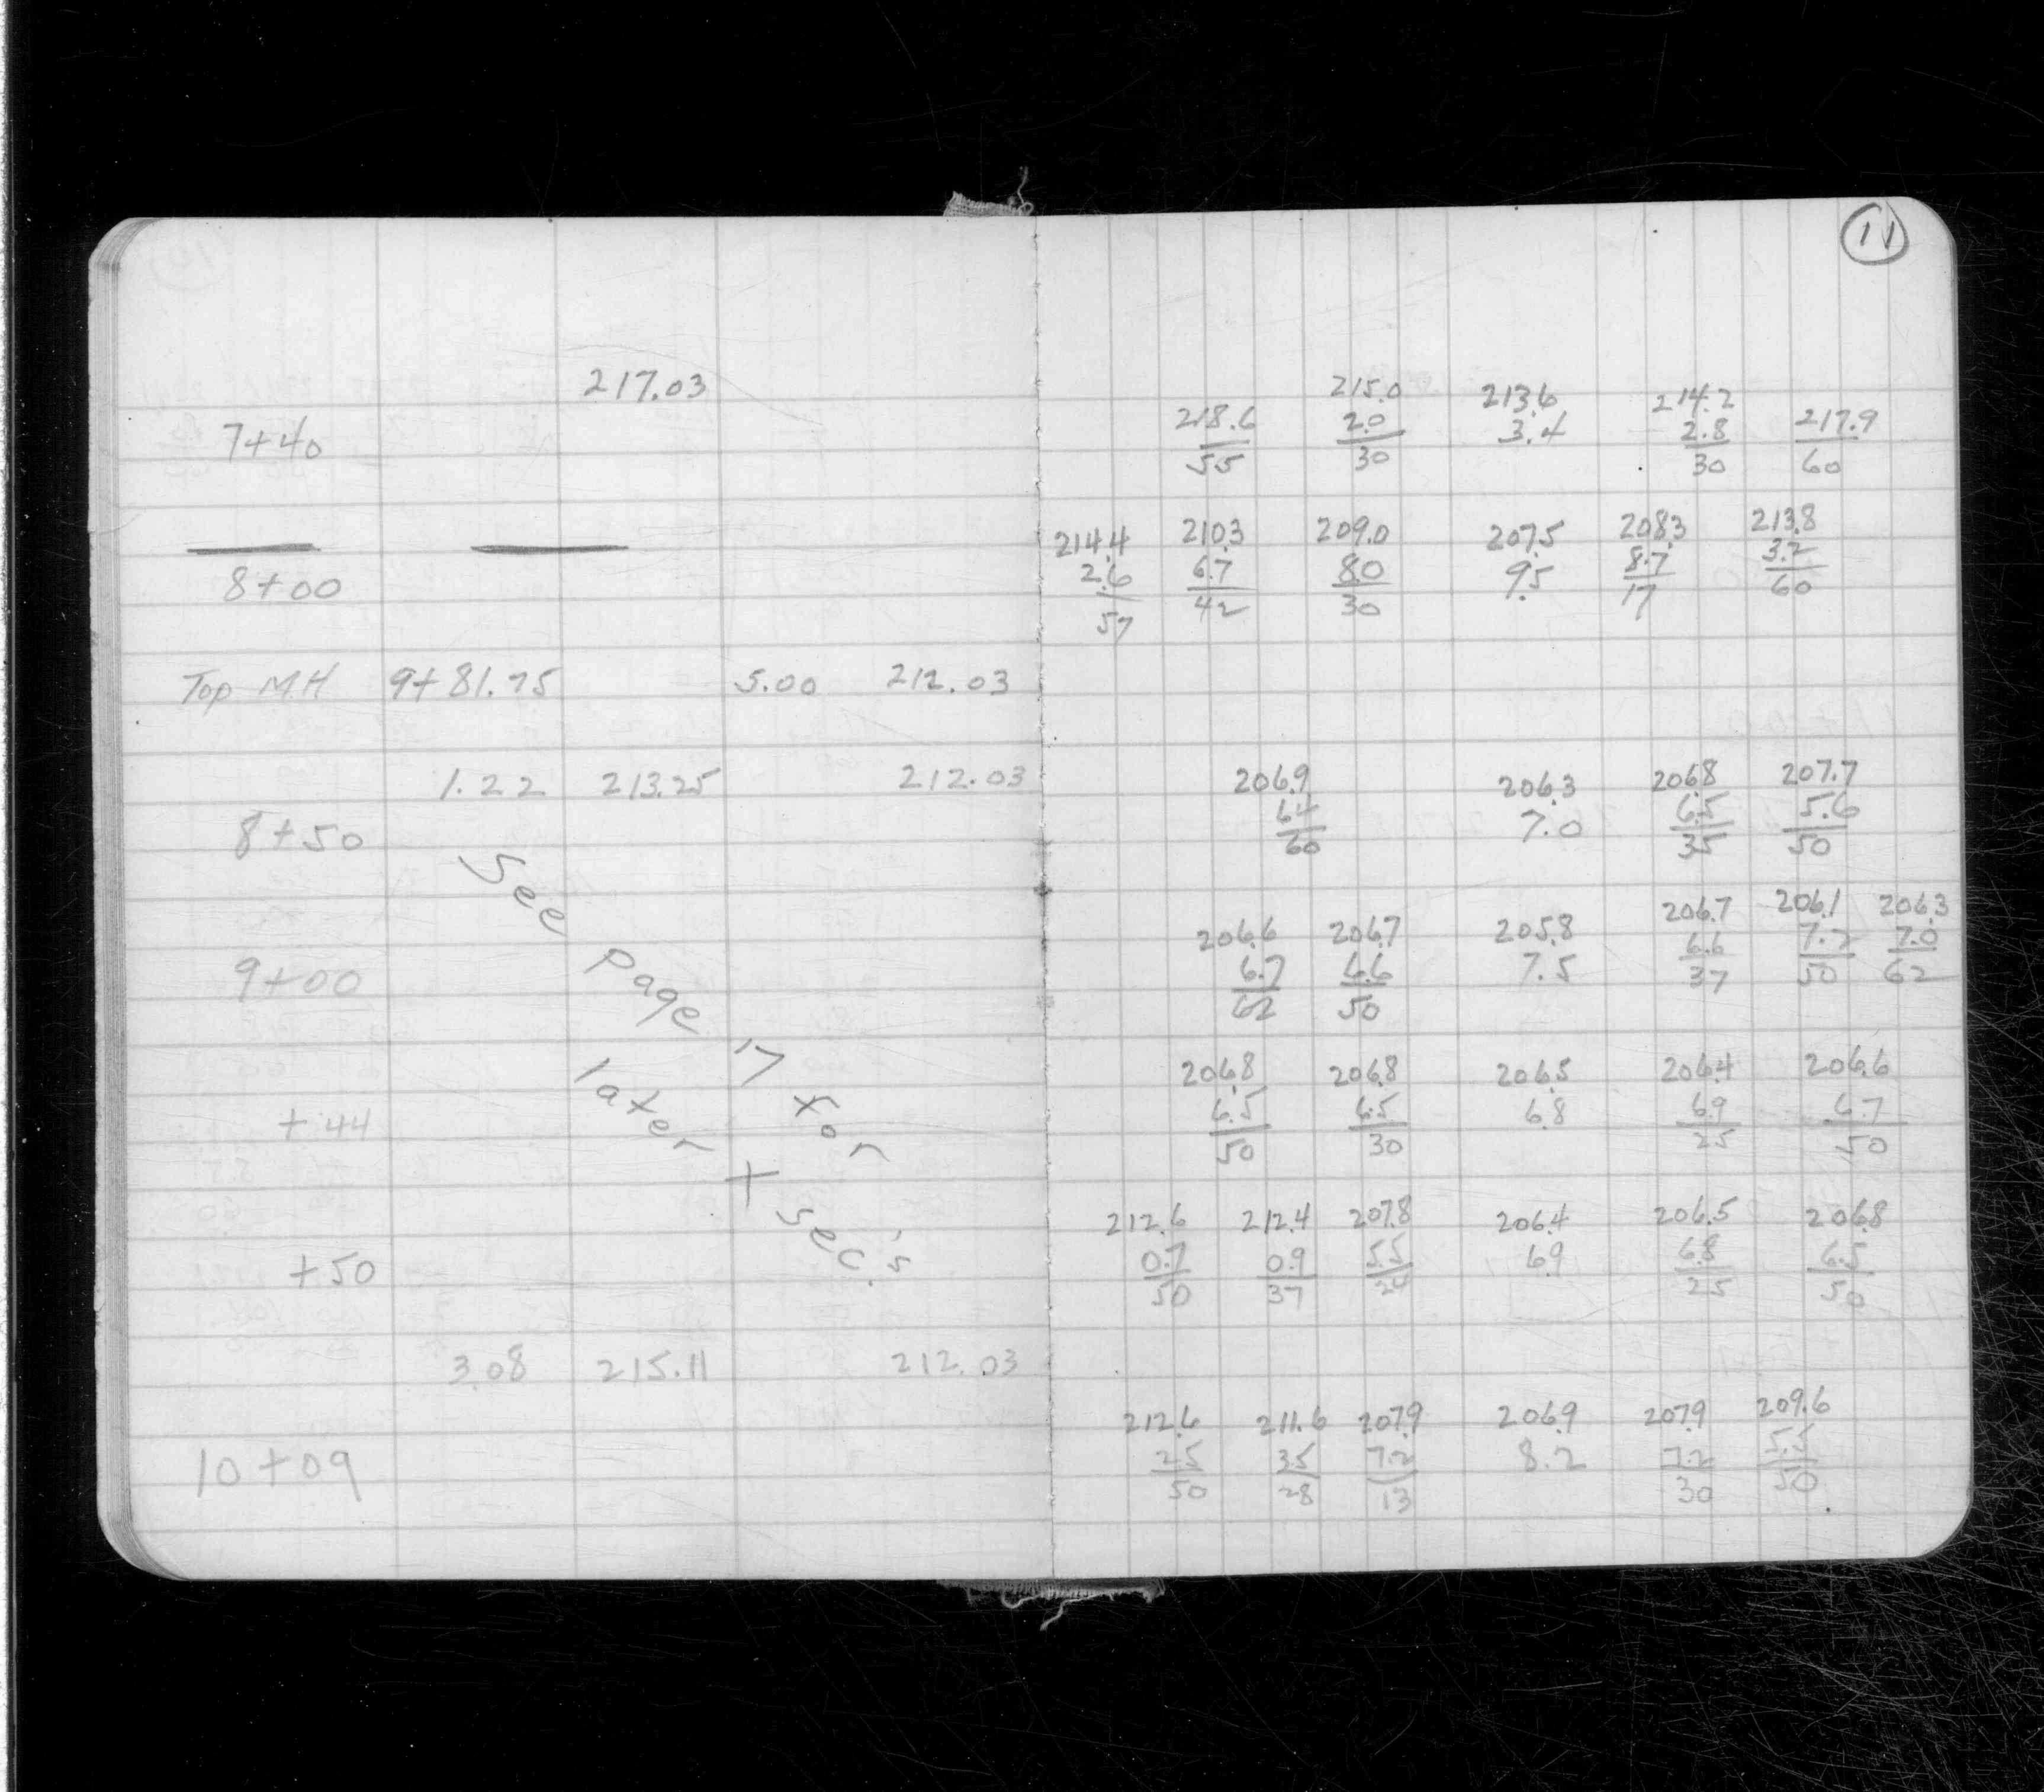 11
217.03
215.0 213.6 214.2
7+40 218.6 2.0 3.4 2.8 217.9
55 30 30 60
214.4 210.3 209.0 207.5 208.3 213.8
8+00 2.6 6.7 8.0 9.5 8.7 3.2
57 42 30 17 60
Top MH 9+81.75 5.00 212.03
1.22 213.25 212.03 206.9 206.3 206.8 207.7
8+50 6.4 7.0 6.5 5.6
60 35 50
See page 17 for
later X sec.'s
206.6 206.7 205.8 206.7 206.1 206.3
9+00 6.7 6.6 7.5 6.6 7.2 7.0
62 50 37 50 62
206.8 206.8 206.5 206.4 206.6
+44 6.5 6.5 6.8 6.9 6.7
50 30 25 50
212.6 212.4 207.8 206.4 206.5 206.8
+50 0.7 0.9 5.5 6.9 6.8 6.5
50 37 24 25 50
3.08 215.11 212.03
212.6 211.6 207.9 206.9 207.9 209.6
10+09 2.5 3.5 7.2 8.2 7.2 5.5
50 28 13 30 50